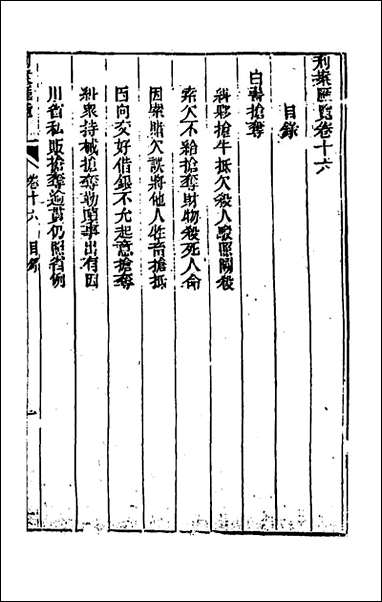 刑案匯覽卷十六
目錄
白晝搶奪
糾夥搶牛抵欠殺人駁照鬬殺
索欠不給搶奪財物殺死人命
因索賭欠誤將他人牲畜搶抵
因向交好借銀不允起意搶奪
糾衆持械搶奪勒贖事出有因
川省私販搶奪逾貫仍照省例
卷十六 目錄
一